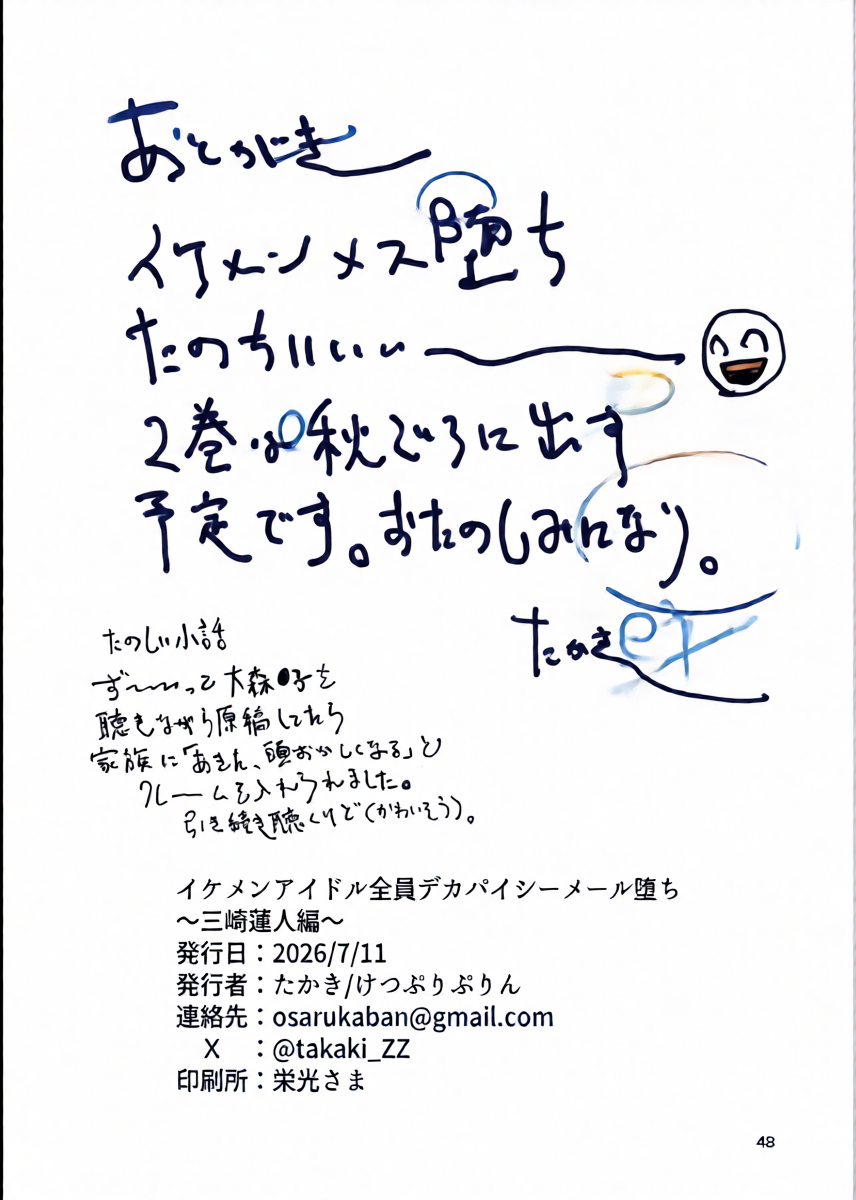 おとがき
イケメンメス堕ち
たのちいいぃぃ
2巻は秋ごろに出す
予定です。おたのしみになり。
たかき
たのしい小話
ず〜〜いって大森●子を
聴きながら原稿してたら
家族に「あきた、頭おかしくなる」と
クレームを入れられました。
引き続き聴くけど(かわいそう)。
イケメンアイドル全員デカパイシーメール堕ち
〜三崎蓮人編〜
発行日:2026/7/11
発行者:たかき/けつぷりぷりん
連絡先:osarukaban@gmail.com
X :@takaki_ZZ
印刷所:栄光さま
48